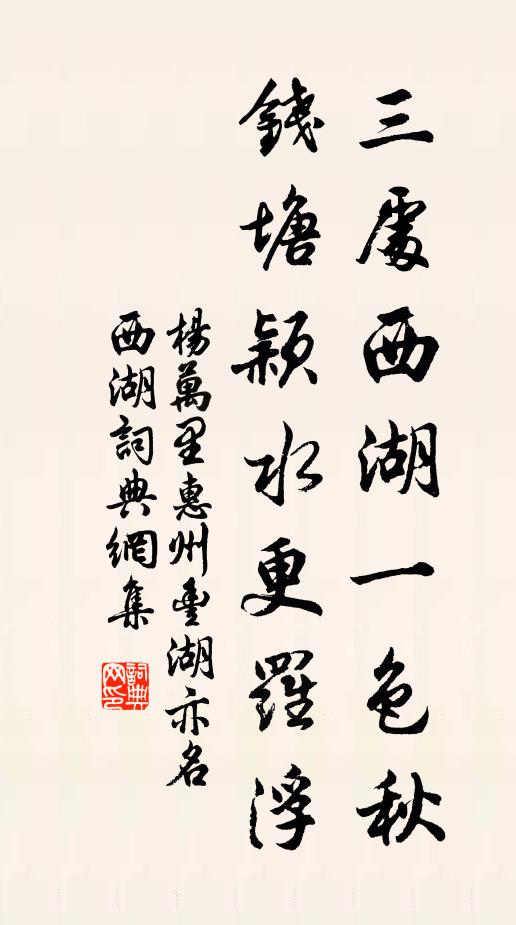 三處西湖一色秋
錢塘潁水更羅浮
楊萬里惠州豊湖亦名
西湖詞典網集
詞典网印